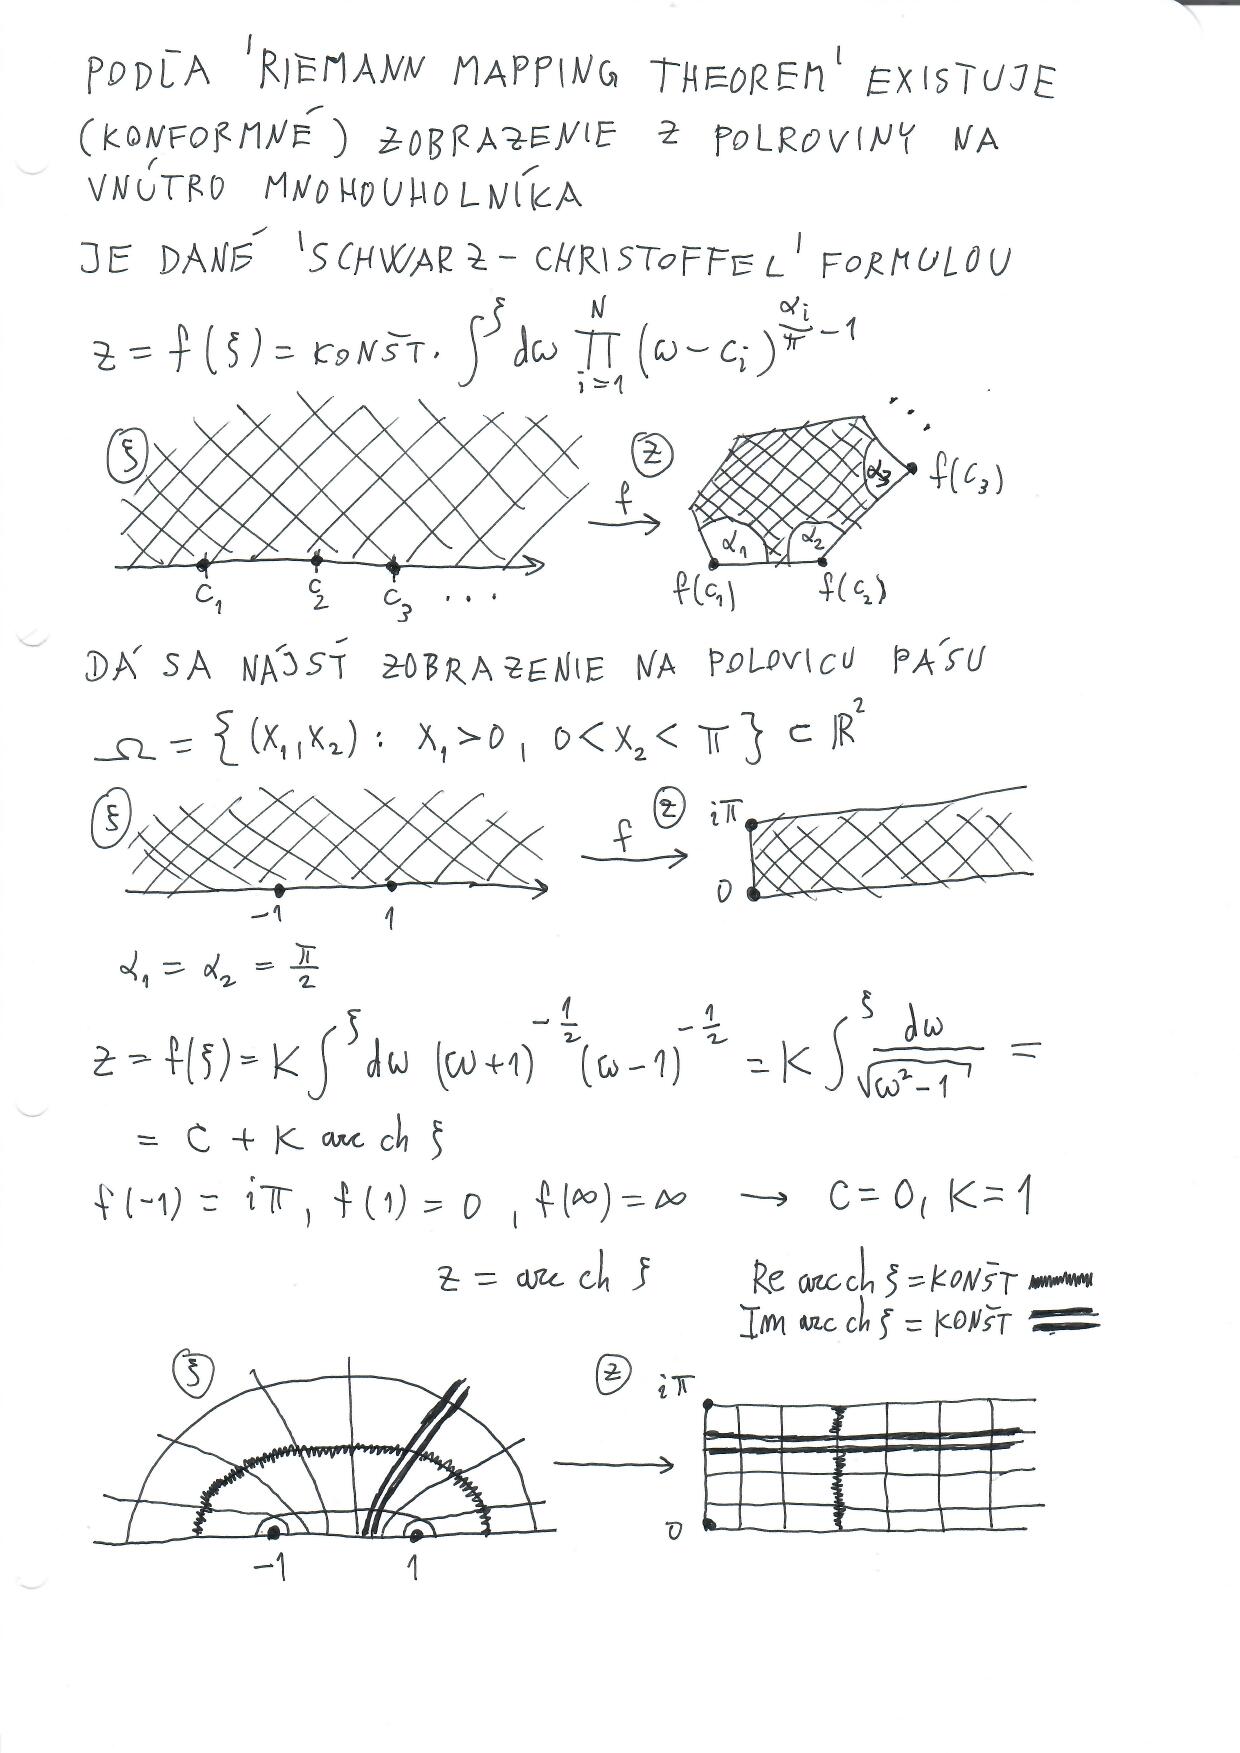 PODĽA 'RIEMANN MAPPING THEOREM' EXISTUJE
(KONFORMNÉ) ZOBRAZENIE Z POLROVINY NA
VNÚTRO MNOHOUHOLNÍKA
JE DANÉ 'SCHWARZ-CHRISTOFFEL' FORMULOU
z = f(ξ) = KONŠT. ∫^ξ dω ∏_{i=1}^{N} (ω - c_i)^{α_i/π - 1}
ξ f z α_3 f(c_3)
α_1 α_2
c_1 c_2 c_3 ... f(c_1) f(c_2)
DÁ SA NÁJSŤ ZOBRAZENIE NA POLOVICU PÁSU
Ω = {(x_1, x_2) : x_1 > 0, 0 < x_2 < π} ⊂ ℝ²
ξ f z iπ
0
-1 1
α_1 = α_2 = π/2
z = f(ξ) = K ∫^ξ dω (ω+1)^{-1/2} (ω-1)^{-1/2} = K ∫^ξ dω/√(ω²-1) =
= C + K arc ch ξ
f(-1) = iπ, f(1) = 0, f(∞) = ∞ → C = 0, K = 1
z = arc ch ξ Re arc ch ξ = KONŠT
Im arc ch ξ = KONŠT
ξ z iπ
0
-1 1